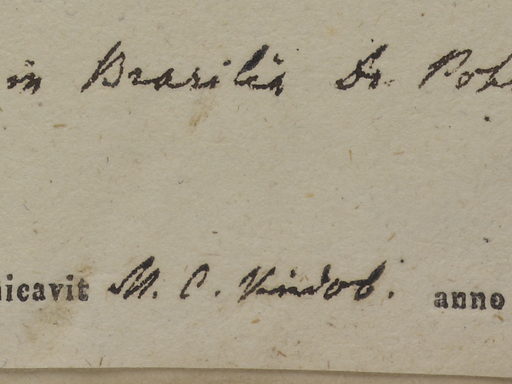 in Brasilia Dr Poh
nicavit M. C. Vindob. anno